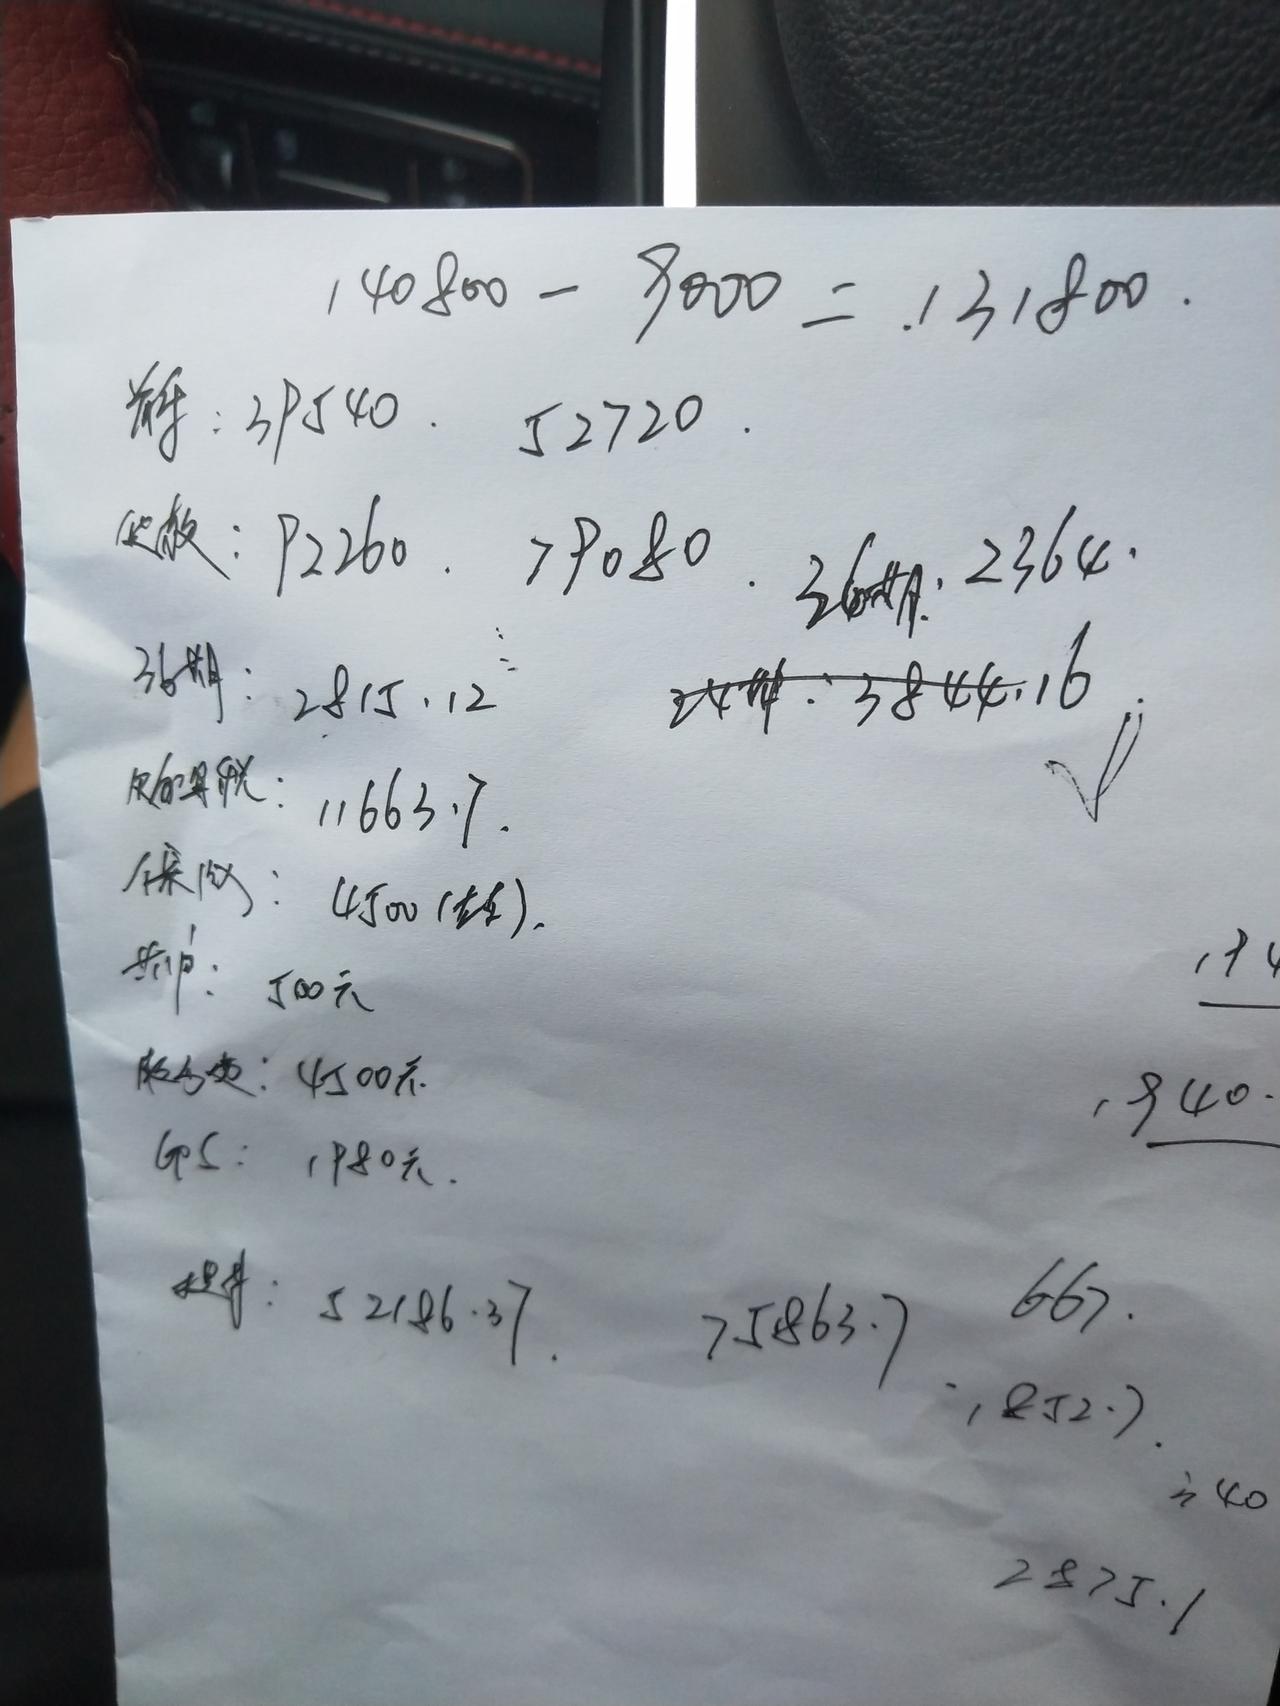 140800 - 9000 = 131800.
首付: 39540. 52720.
贷款: 92260. 79080. 36期: 2364.
36期: 2815.12 24期: 3844.16
购置税: 11663.7.
保险: 4500(左右).
上户: 500元
服务费: 4500元.
GPS: 1980元.
1940.
提车: 52186.37. 75863.7 667.
1852.7.
340
2875.1